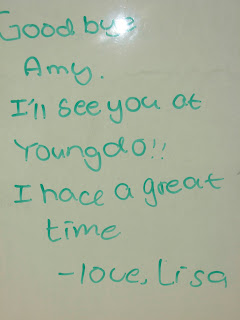 Good bye
Amy.
I'll see you at
Youngdo!!
I hace a great
time
-love, Lisa